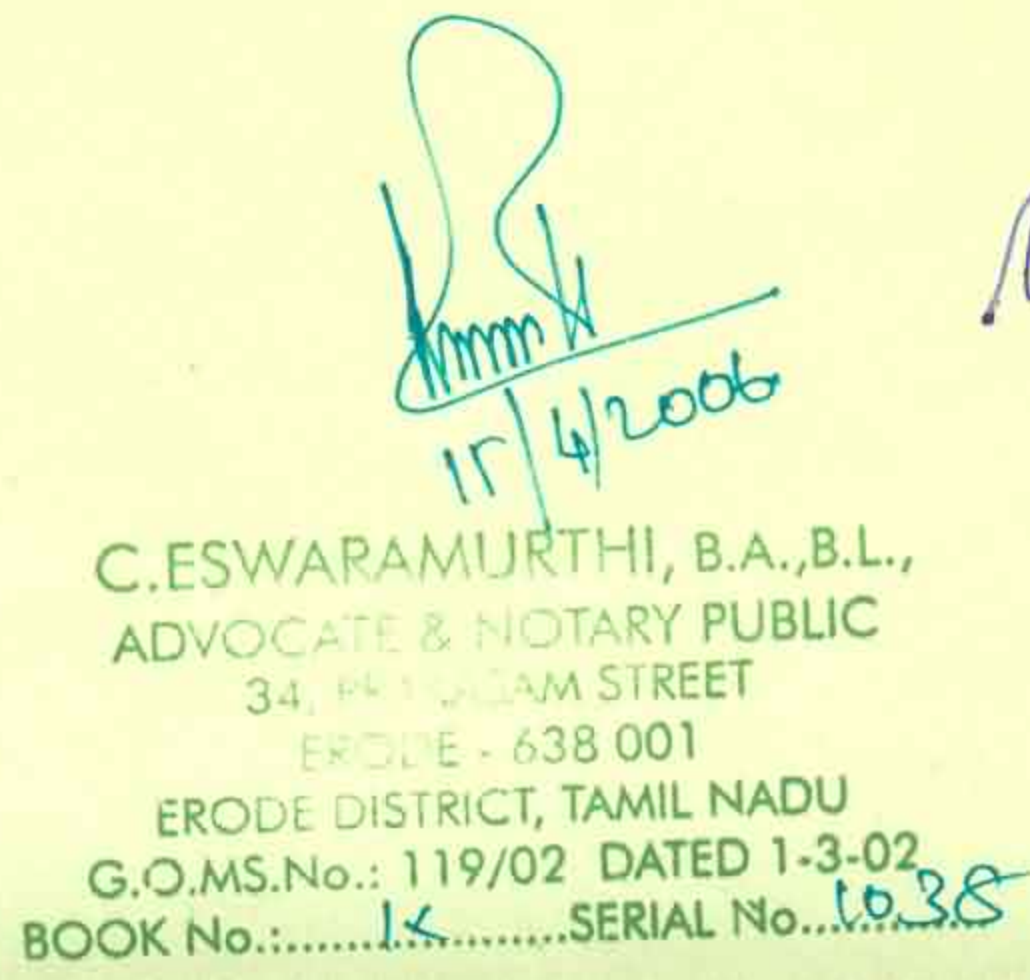 15/4/2006
C.ESWARAMURTHI, B.A.,B.L.,
ADVOCATE & NOTARY PUBLIC
34, STREET
ERODE - 638 001
ERODE DISTRICT, TAMIL NADU
G.O.MS.No.: 119/02 DATED 1-3-02
BOOK No.:.......K...........SERIAL No...1038